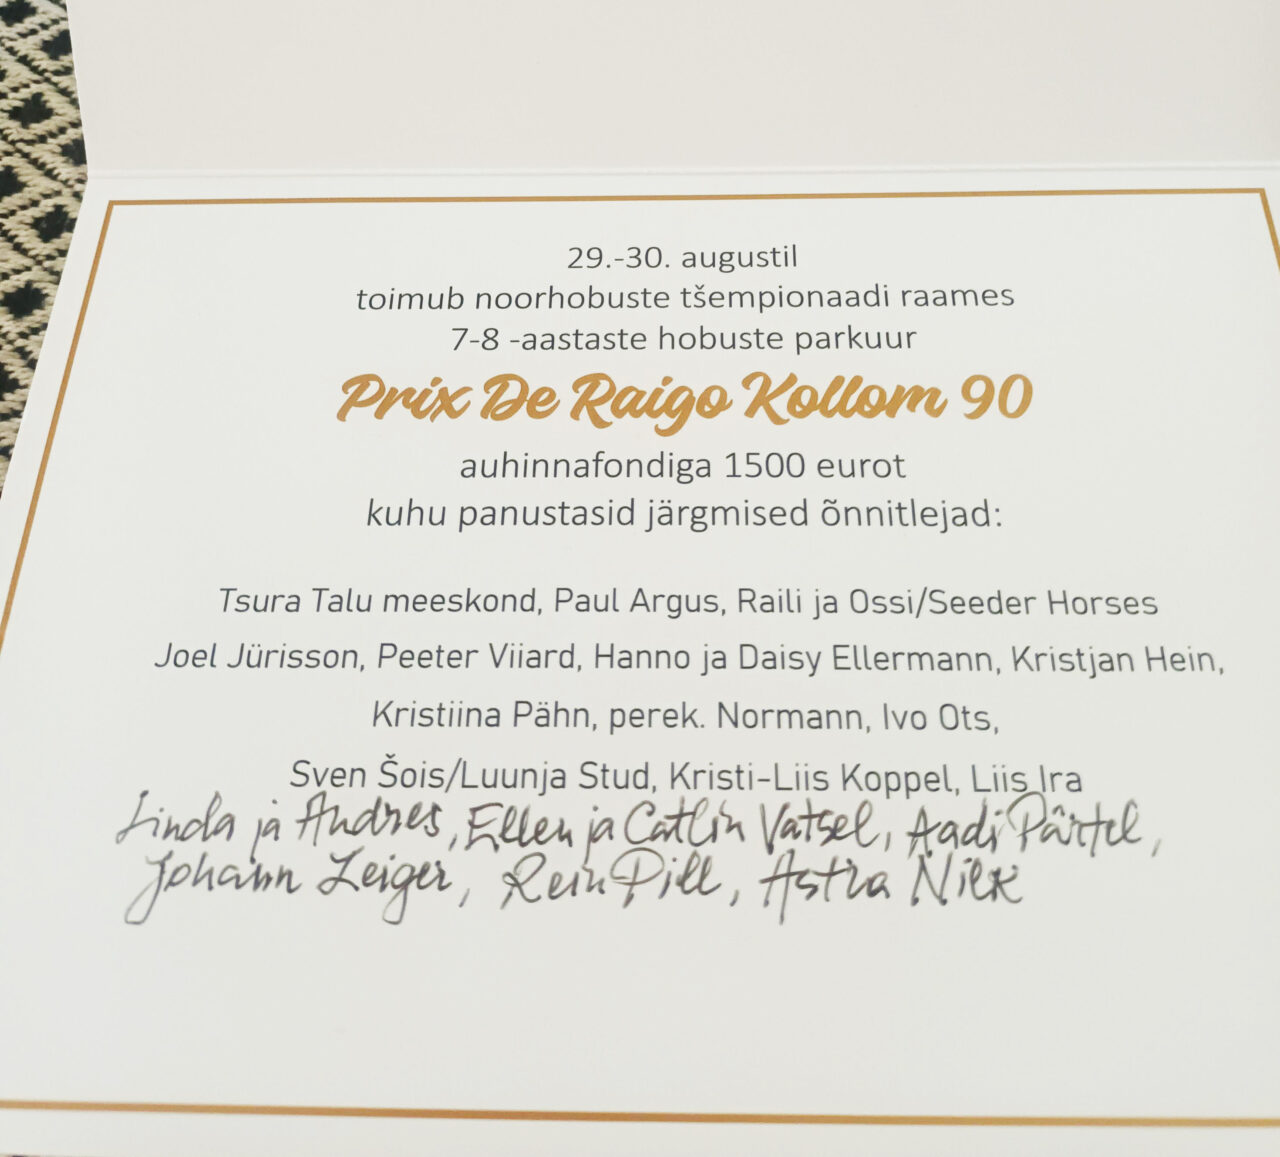 29.-30. augustil
toimub noorhobuste tšempionaadi raames
7-8 -aastaste hobuste parkuur
Prix De Raigo Kollom 90
auhinnafondiga 1500 eurot
kuhu panustasid järgmised õnnitlejad:
Tsura Talu meeskond, Paul Argus, Raili ja Ossi/Seeder Horses
Joel Jürisson, Peeter Viiard, Hanno ja Daisy Ellermann, Kristjan Hein,
Kristiina Pähn, perek. Normann, Ivo Ots,
Sven Šois/Luunja Stud, Kristi-Liis Koppel, Liis Ira
Linda ja Andres, Ellen ja Catlin Vatsel, Aadi Pärtel,
Johann Leiger, Rein Pill, Astra Nilk